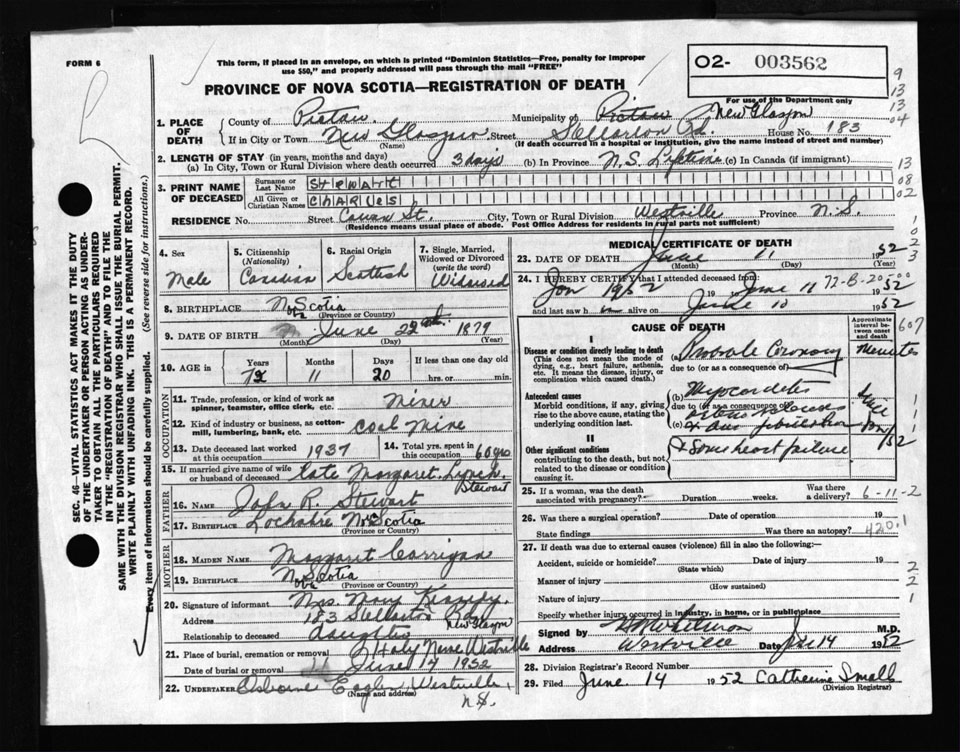 FORM 6
This form, if placed in an envelope, on which is printed "Dominion Statistics—Free, penalty for improper
use $50," and properly addressed will pass through the mail "FREE"
02- 003562
PROVINCE OF NOVA SCOTIA—REGISTRATION OF DEATH
For use of the Department only
1. PLACE OF DEATH
County of Pictou Municipality of Pictou New Glasgow
If in City or Town New Glasgow Street Stellarton Rd. House No. 183
(Name) (If death occurred in a hospital or institution, give the name instead of street and number)
2. LENGTH OF STAY (in years, months and days)
(a) In City, Town or Rural Division where death occurred 3 days (b) In Province N.S. Lifetime (c) In Canada (if immigrant)
3. PRINT NAME OF DECEASED
Surname or Last Name STEWART
All Given or Christian Names CHARLES
RESIDENCE No. Street Cowan St. City, Town or Rural Division Westville Province N.S.
(Residence means usual place of abode. Post Office Address for residents in rural parts not sufficient)
4. Sex Male
5. Citizenship (Nationality) Canadian
6. Racial Origin Scottish
7. Single, Married, Widowed or Divorced (write the word) Widowed
8. BIRTHPLACE Nova Scotia
(Province or Country)
9. DATE OF BIRTH June 22nd 1879
(Month) (Day) (Year)
10. AGE in Years 72 Months 11 Days 20 If less than one day old
hrs. or min.
OCCUPATION
11. Trade, profession, or kind of work as spinner, teamster, office clerk, etc. Miner
12. Kind of industry or business, as cotton-mill, lumbering, bank, etc. Coal Mine
13. Date deceased last worked at this occupation 1937
14. Total yrs. spent in this occupation 60 yrs
15. If married give name of wife or husband of deceased late Margaret Lynch Stewart
FATHER
16. NAME John R. Stewart
17. BIRTHPLACE Lochabre Nova Scotia
(Province or Country)
MOTHER
18. MAIDEN NAME Margaret Carrigan
19. BIRTHPLACE Nova Scotia
(Province or Country)
20. Signature of informant Mrs. Mary
Address 183 Stellarton Road New Glasgow
Relationship to deceased daughter
21. Place of burial, cremation or removal Holy Name Westville
Date of burial or removal June 14 1952
22. UNDERTAKER Osborne Eagles Westville N.S.
(Name and address)
MEDICAL CERTIFICATE OF DEATH
23. DATE OF DEATH June 11 1952
(Month) (Day) (Year)
24. I HEREBY CERTIFY that I attended deceased from
Jan 1952 19 to June 11 1952
72-B-20
and last saw h alive on June 10 1952
CAUSE OF DEATH
Approximate interval between onset and death
I
Disease or condition directly leading to death
(This does not mean the mode of dying, e.g., heart failure, asthenia, etc. It means the disease, injury, or complication which caused death.)
Probable Coronary Minutes
due to (or as a consequence of)
Antecedent causes
Morbid conditions, if any, giving rise to the above cause, stating the underlying condition last.
(b) Myocarditis
due to (or as a consequence of)
(c) fibrillation
since Jan/52
II
Other significant conditions
contributing to the death, but not related to the disease or condition causing it.
& Some heart failure
25. If a woman, was the death associated with pregnancy? Duration weeks. Was there a delivery?
6-11-2
26. Was there a surgical operation? Date of operation 19
State findings Was there an autopsy?
420.1
27. If death was due to external causes (violence) fill in also the following:—
Accident, suicide or homicide? Date of injury 19
(State which)
Manner of injury
(How sustained)
Nature of injury
Specify whether injury occurred in industry, in home, or in public place
Signed by M.D.
Address Westville Date June 14 1952
28. Division Registrar's Record Number
29. Filed June 14 1952 Catherine Small
(Division Registrar)
SEC. 46—VITAL STATISTICS ACT MAKES IT THE DUTY
OF THE UNDERTAKER OR PERSON ACTING AS UNDER-
TAKER TO OBTAIN ALL THE PARTICULARS REQUIRED
IN THE "REGISTRATION OF DEATH" AND TO FILE THE
SAME WITH THE DIVISION REGISTRAR WHO SHALL ISSUE THE BURIAL PERMIT.
WRITE PLAINLY WITH UNFADING INK. THIS IS A PERMANENT RECORD.
Every item of information should be carefully supplied. (See reverse side for instructions.)
9
13
13
04
13
08
02
1
0
2
3
607
1
1
1
1
2
2
1